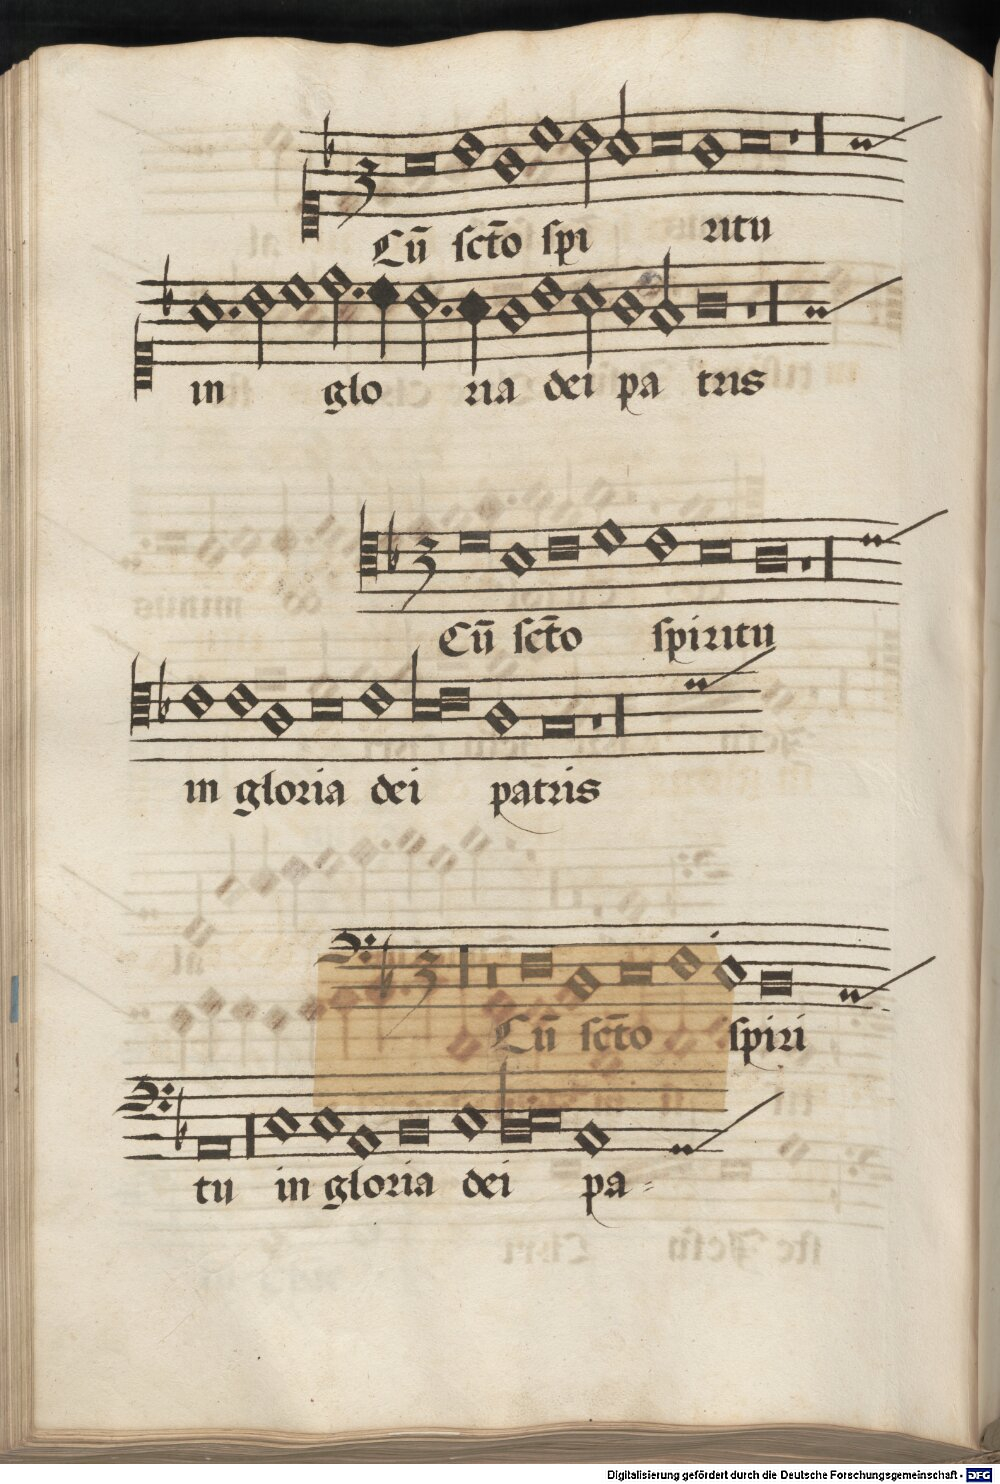 3
Cū sc̄to spi ritu
in glo ria dei pa tris
3
Cū sc̄to spiritu
in gloria dei patris
3
Cū sc̄to spiri
tu in gloria dei pa⸗
Digitalisierung gefördert durch die Deutsche Forschungsgemeinschaft - DFG